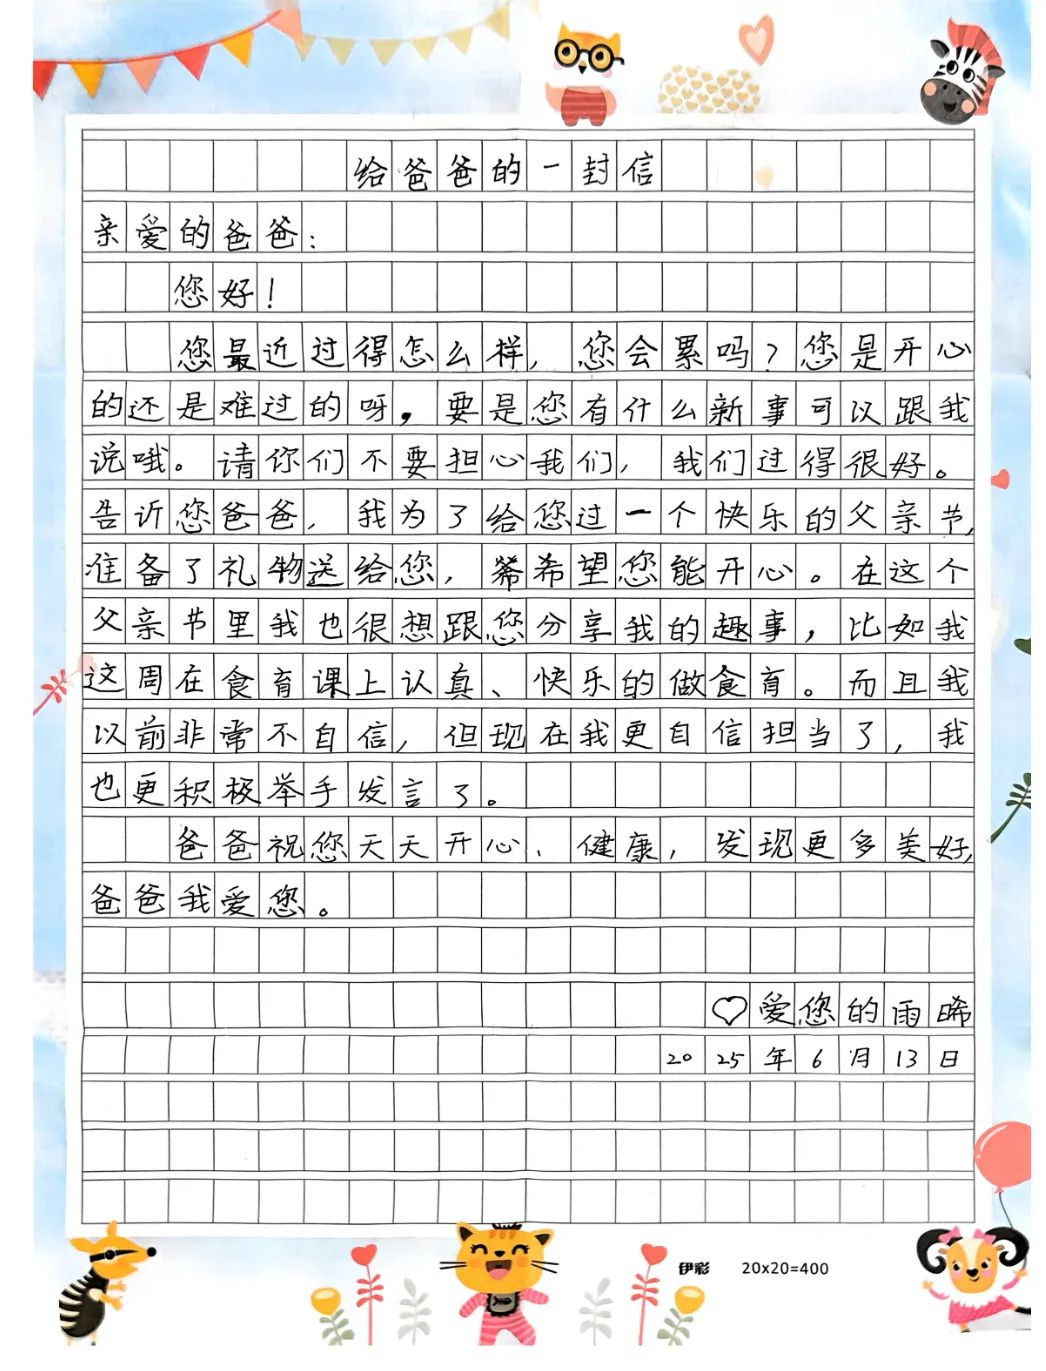 给爸爸的一封信
亲爱的爸爸：
您好！
您最近过得怎么样，您会累吗？您是开心
的还是难过的呀，要是您有什么新事可以跟我
说哦。请你们不要担心我们，我们过得很好。
告诉您爸爸，我为了给您过一个快乐的父亲节，
准备了礼物送给您，希望您能开心。在这个
父亲节里我也很想跟您分享我的趣事，比如我
这周在食育课上认真、快乐的做食育。而且我
以前非常不自信，但现在我更自信担当了，我
也更积极举手发言了。
爸爸祝您天天开心、健康，发现更多美好，
爸爸我爱您。
爱您的雨晞
2025年6月13日
伊彩 20x20=400